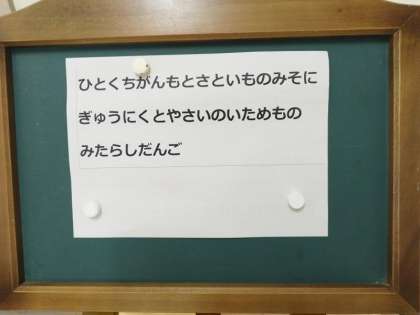 ひとくちがんもとさといものみそに
ぎゅうにくとやさいのいためもの
みたらしだんご